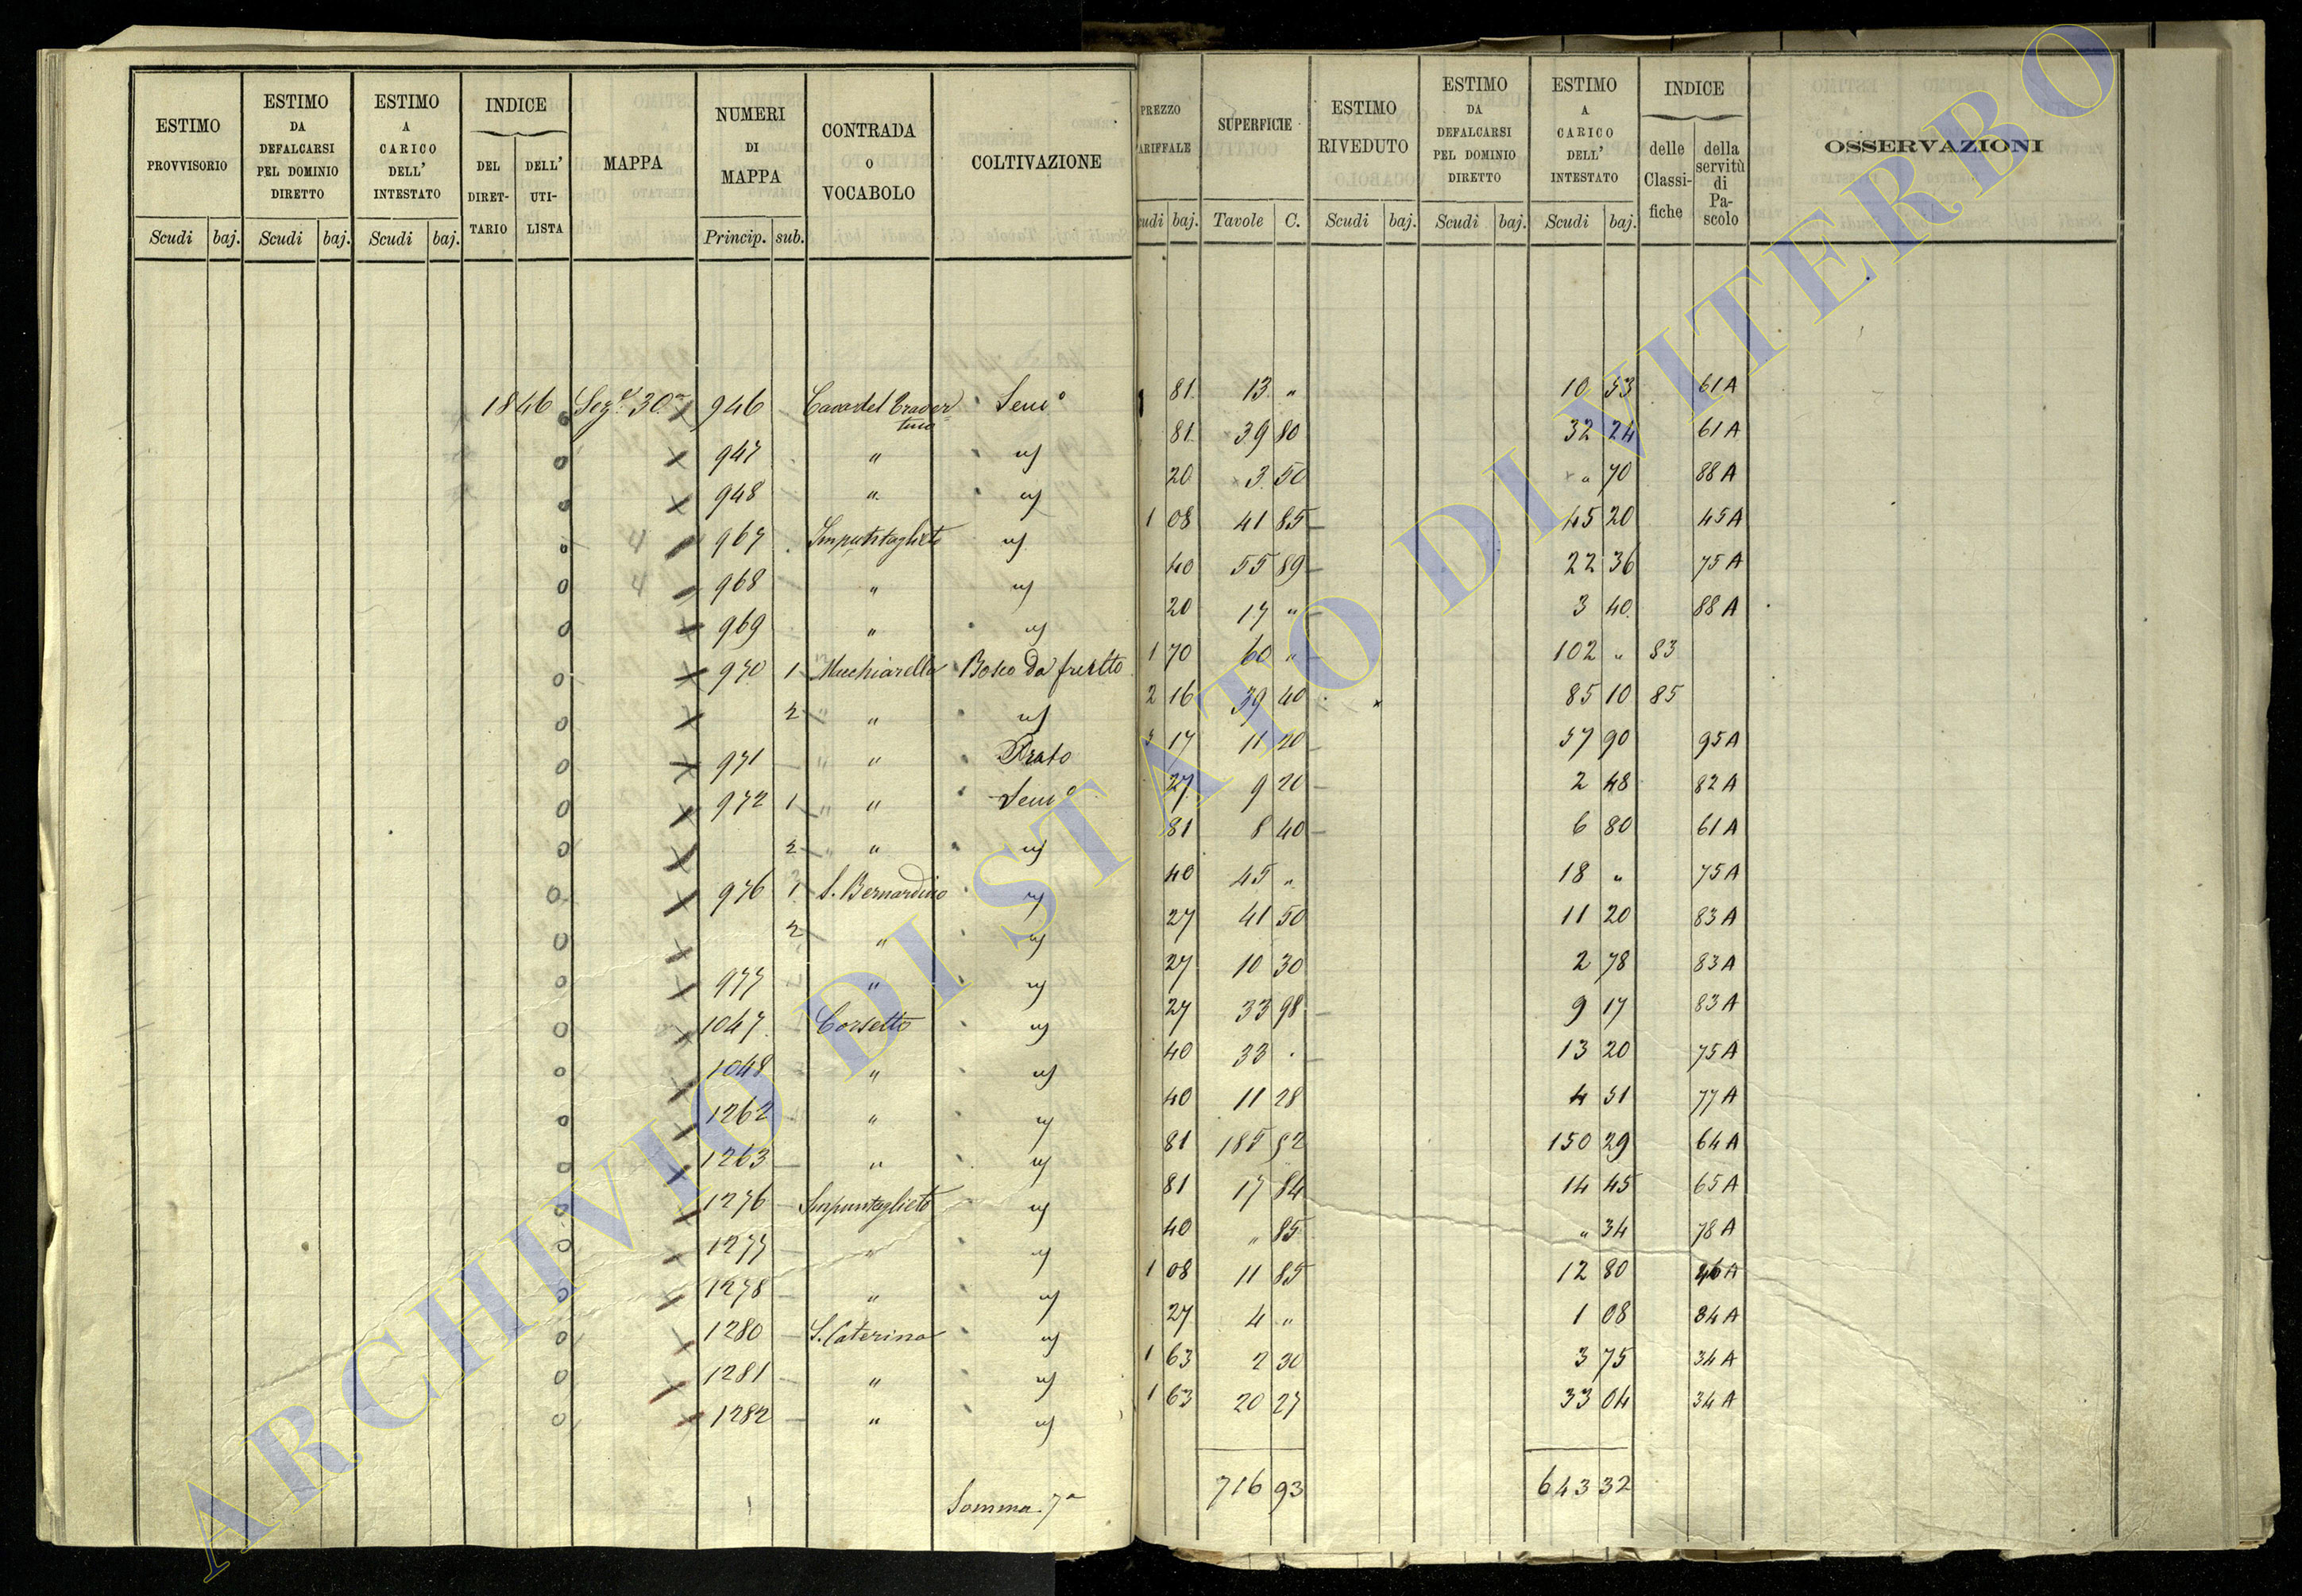 ESTIMO PROVVISORIO | ESTIMO DA DEFALCARSI PEL DOMINIO DIRETTO | ESTIMO A CARICO DELL' INTESTATO | INDICE DEL DIRETTARIO | DELL' UTILISTA | MAPPA | NUMERI DI MAPPA | CONTRADA O VOCABOLO | COLTIVAZIONE | PREZZO ARIFFALE | SUPERFICIE | ESTIMO RIVEDUTO | ESTIMO DA DEFALCARSI PEL DOMINIO DIRETTO | ESTIMO A CARICO DELL' INTESTATO | INDICE delle Classifiche | della servitù di Pascolo | OSSERVAZIONI
Scudi | baj. | Scudi | baj. | Scudi | baj. | Princip. | sub. | cudi | baj. | Tavole | C. | Scudi | baj. | Scudi | baj. | Scudi | baj.
1846 Sez.e 30a 946 Cava del Travertino Sem.o 81 13 " 10 53 61A
947 " id 81 39 80 32 24 61A
948 " id 20 3 50 " 70 88A
4 967 id 1 08 41 85 45 20 45A
4 968 " id 40 55 89 22 36 75A
969 " id 20 17 " 3 40 88A
970 1 Macchiarella Bosco da frutto 1 70 60 " 102 " 83
2 " id 2 16 39 40 85 10 85
971 " Prato 5 17 11 20 57 90 95A
972 1 " Sem.o 27 9 20 2 48 82A
2 " id 81 8 40 6 80 61A
976 1 S. Bernardino id 40 45 " 18 " 75A
2 " id 27 41 50 11 20 83A
977 " id 27 10 30 2 78 83A
1047 Corsetto id 27 33 98 9 17 83A
1048 " id 40 33 . 13 20 75A
1262 " id 40 11 28 4 51 77A
1263 " id 81 185 52 150 29 64A
1276 id 81 17 84 14 45 65A
1277 " id 40 " 85 " 34 78A
1278 " id 1 08 11 85 12 80 46A
1280 S. Caterina id 27 4 " 1 08 84A
1281 " id 1 63 2 30 3 75 34A
1282 " id 1 63 20 27 33 04 34A
Somma 7a 716 93 643 32
ARCHIVIO DI STATO DI VITERBO